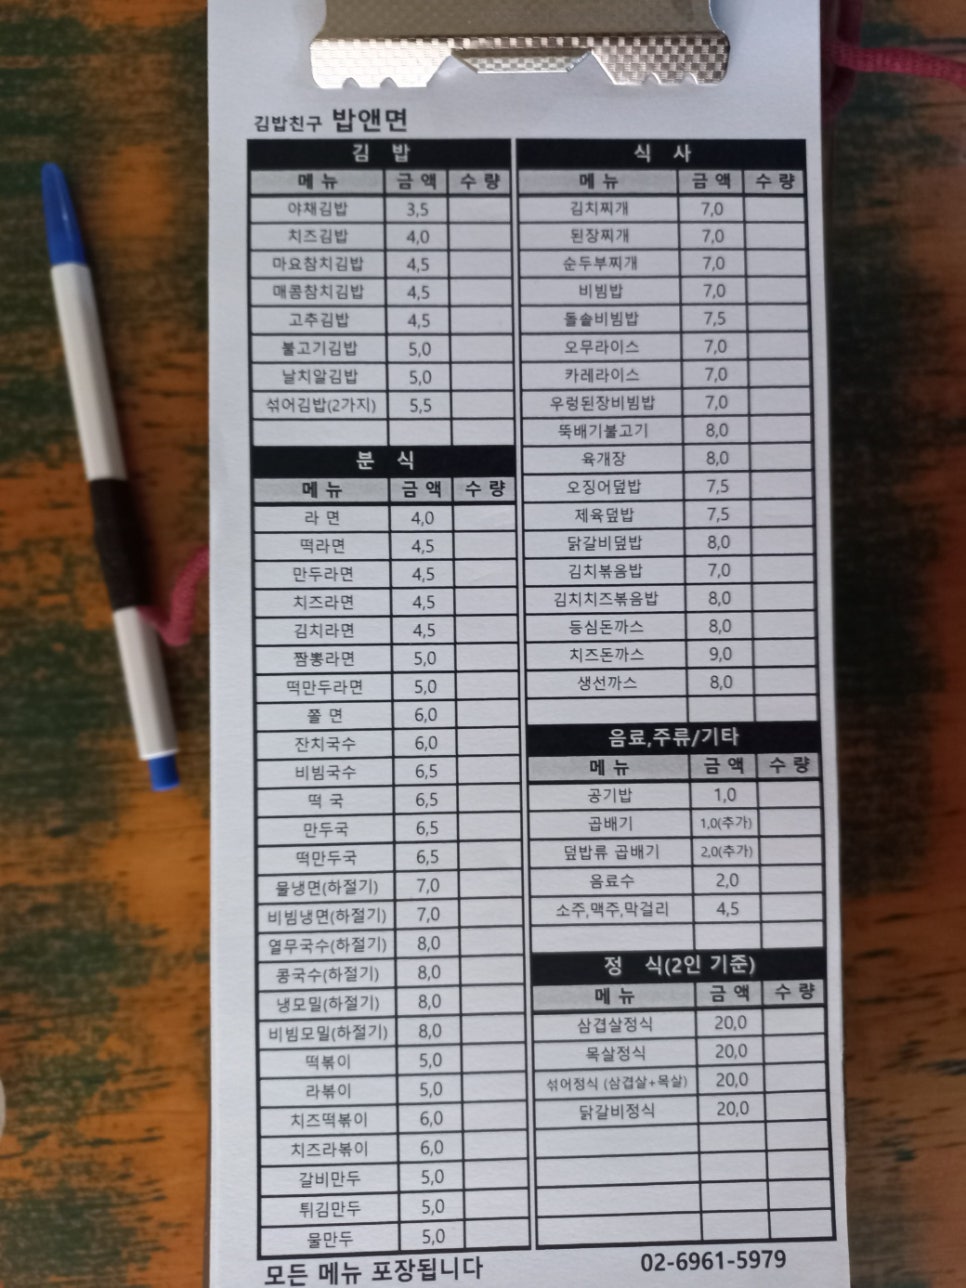 김밥친구 밥앤면
김 밥
메 뉴 금 액 수 량
야채김밥 3,5
치즈김밥 4,0
마요참치김밥 4,5
매콤참치김밥 4,5
고추김밥 4,5
불고기김밥 5,0
날치알김밥 5,0
섞어김밥(2가지) 5,5
분 식
메 뉴 금 액 수 량
라 면 4,0
떡라면 4,5
만두라면 4,5
치즈라면 4,5
김치라면 4,5
짬뽕라면 5,0
떡만두라면 5,0
쫄 면 6,0
잔치국수 6,0
비빔국수 6,5
떡 국 6,5
만두국 6,5
떡만두국 6,5
물냉면(하절기) 7,0
비빔냉면(하절기) 7,0
열무국수(하절기) 8,0
콩국수(하절기) 8,0
냉모밀(하절기) 8,0
비빔모밀(하절기) 8,0
떡볶이 5,0
라볶이 5,0
치즈떡볶이 6,0
치즈라볶이 6,0
갈비만두 5,0
튀김만두 5,0
물만두 5,0
식 사
메 뉴 금 액 수 량
김치찌개 7,0
된장찌개 7,0
순두부찌개 7,0
비빔밥 7,0
돌솥비빔밥 7,5
오무라이스 7,0
카레라이스 7,0
우렁된장비빔밥 7,0
뚝배기불고기 8,0
육개장 8,0
오징어덮밥 7,5
제육덮밥 7,5
닭갈비덮밥 8,0
김치볶음밥 7,0
김치치즈볶음밥 8,0
등심돈까스 8,0
치즈돈까스 9,0
생선까스 8,0
음료,주류/기타
메 뉴 금 액 수 량
공기밥 1,0
곱배기 1,0(추가)
덮밥류 곱배기 2,0(추가)
음료수 2,0
소주,맥주,막걸리 4,5
정 식(2인 기준)
메 뉴 금 액 수 량
삼겹살정식 20,0
목살정식 20,0
섞어정식 (삼겹살+목살) 20,0
닭갈비정식 20,0
모든 메뉴 포장됩니다
02-6961-5979